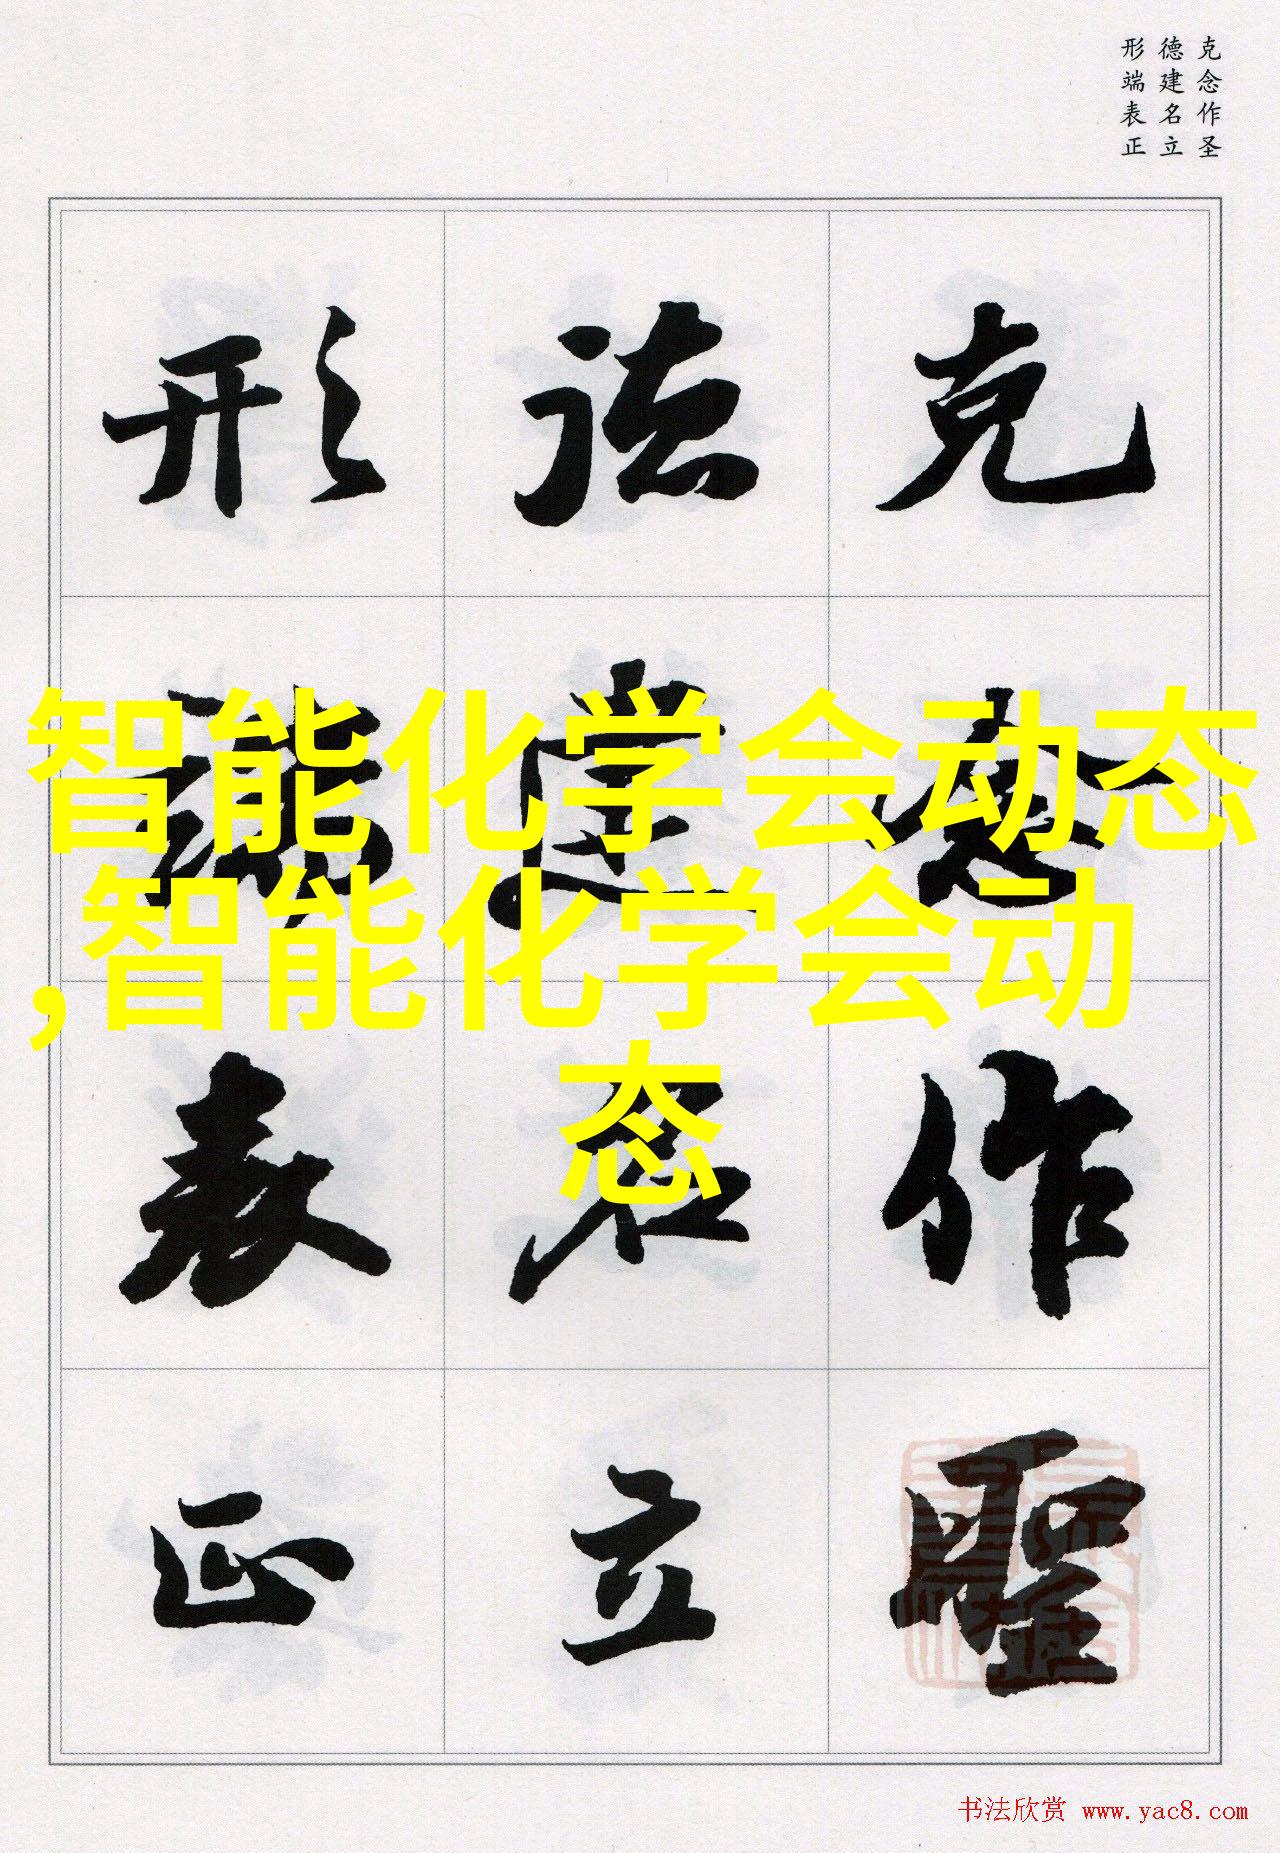 克念作圣
德建名立
形端表正
克念作聖
建名立
形端表正
智能化学会动态
,智能化学会动
态
书法欣赏 www.yac8.com